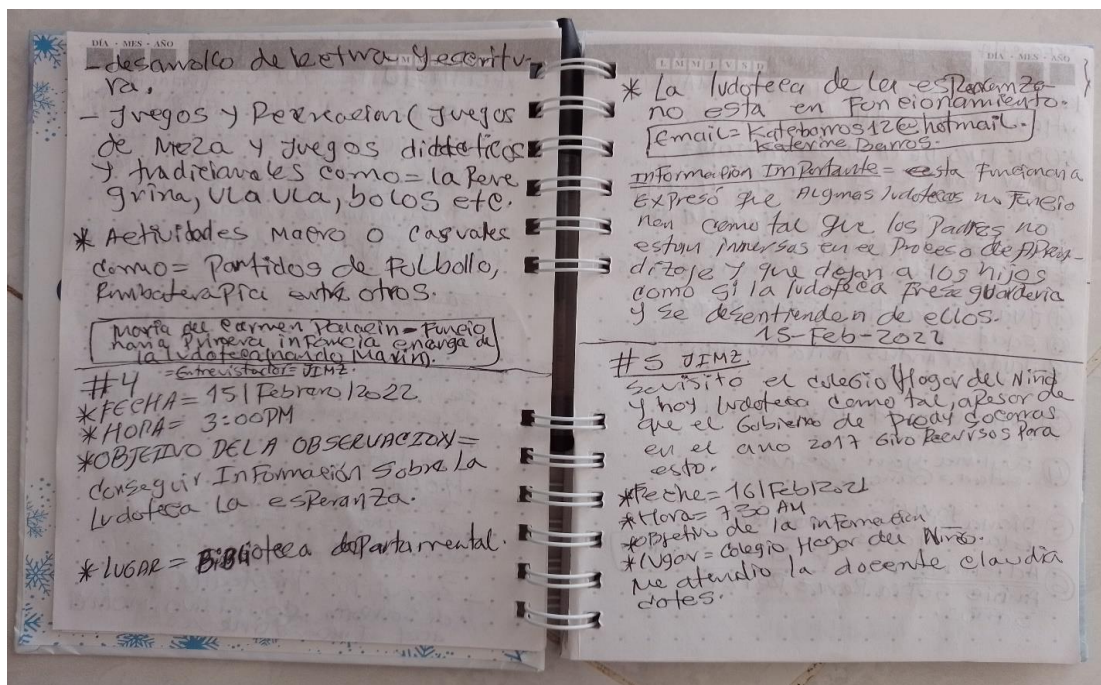 DÍA - MES - AÑO
-desarrollo de lectura y escritu-
ra.
- Juegos y Recreacion (Juegos
de Meza y Juegos didacticos
y tradicionales como= la Pere
grina, ULa ULa, bolos etc.
* Actividades Macro o casuales
como= Partidos de Futbollo,
Rumbaterapia entre otros.
Maria del Carmen - Funcio
naria Primera infancia encarga de
la ludoteca (nando Marin).
=Entrevistador= JIMZ.
#4
*FECHA= 15/Febrero/2022
*HORA= 3:00PM
*OBJETIVO DE LA OBSERVACION=
Conseguir Información Sobre La
Ludoteca La esperanza.
*LUGAR= Biblioteca departamental.
L M M J V S D
DÍA - MES - AÑO
* La ludoteca de la esperanza
no esta en Funcionamiento.
Email= Katebarros12@hotmail.
Katerine Barros.
Información Importante= esta Funcionaria
Expresó que Algunas ludotecas no Funcio
nan como tal que los Padres no
estan inmersas en el Proceso de APren-
dizaje y que dejan a los hijos
como si la ludoteca Frese guarderia
y se desentienden de ellos.
15-Feb-2022
#5 JIMZ.
Se visito el colegio Hogar del Niño
y hoy ludoteca como tal, apesar de
que el Gobierno de
en el año 2017 Giro Recursos Para
esto.
*Feche= 16/Feb/2021
*Hora= 730 AM
*objetivo de la informacion
*lugar= Colegio Hogar del Niño.
Me atendio la docente claudia
dotes.